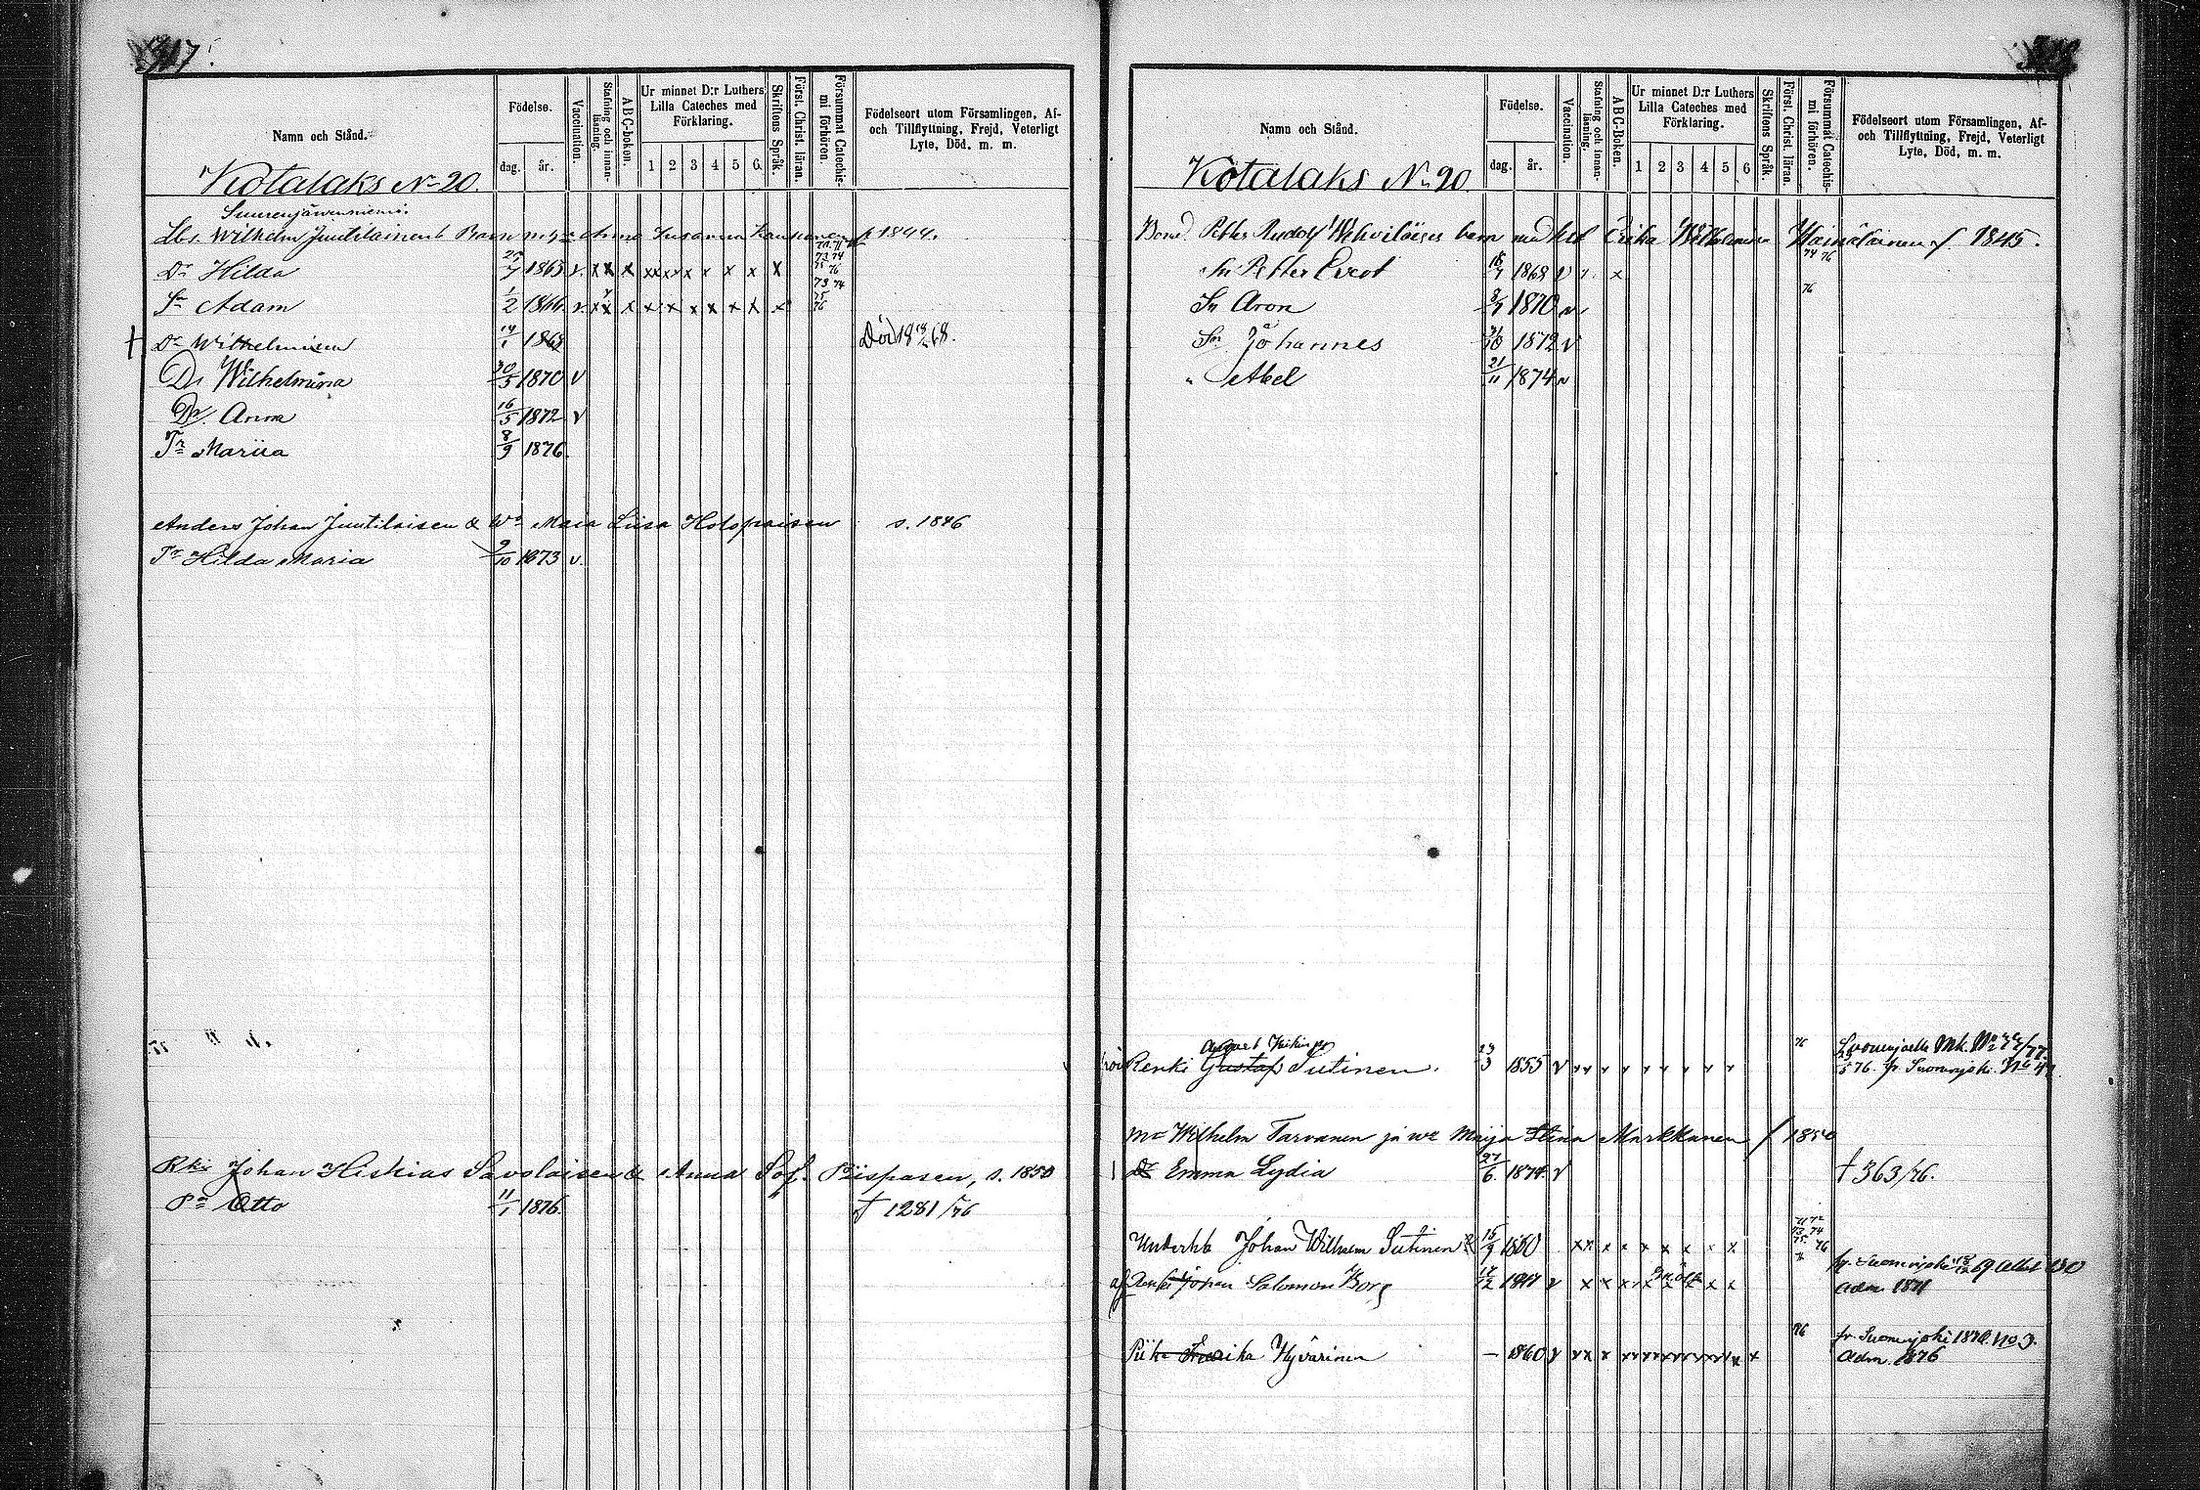 317.
Namn och Stånd.
Födelse.
dag. år.
Vaccination.
Stafning och innan-läsning.
ABC-boken.
Ur minnet D:r Luthers Lilla Cateches med Förklaring.
1 2 3 4 5 6.
Skriftens Språk.
Först. Christ. läran.
Försummat Catechismi förhören.
Födelseort utom Församlingen, Af- och Tillflyttning, Frejd, Veterligt Lyte, Död, m. m.
Kotalaks No 20.
Suurenjärvenniemi.
Lbs. Wilhelm Juutilainens Barn m. h. Anna Susanna Kauppinen f. 1844.
Dr Hilda 1865 v. x x x x x x x x x x 73 74 75 76
Sn Adam 1/2 1866 v. x x x x x x x x x x 73 74 75 76
Dr Wilhelmina 14/1 1868 Död 68.
Dr Wilhelmina 30/5 1870 v
Dr Anna 16/5 1872 v
Tr Mariia 8/9 1876.
Anders Johan Juutilaisen & Wo Maia Liisa Holopaisen s. 1846
Tr Hilda Maria 9/10 1873 v.
Rki Johan Hiskias Savolaisen & Anna Sof. Piispasen, s. 1850
Pa Otto 11/1 1876. † 1281/76
318
Namn och Stånd.
Födelse.
dag. år.
Vaccination.
Stafning och innan-läsning.
ABC-Boken.
Ur minnet D:r Luthers Lilla Cateches med Förklaring.
1 2 3 4 5 6
Skriftens Språk.
Först. Christ. läran.
Försummat Catechismi förhören.
Födelseort utom Församlingen, Af- och Tillflyttning, Frejd, Veterligt Lyte, Död, m. m.
Kotalaks No 20.
Bond. Petter Rudolf Wehviläises barn med h. Erika Wilhelmina Hämäläinen f. 1845.
Sn Petter Evert 18/7 1868 v x 74 76
Sn Aron 1870 v 76
Sn Johannes 1872 v
" Abel 21/11 1874 v
August
Renki Gustaf Sutinen. 23/3 1855 v x x x x x x x x x 76
5 76. fr. Suonenjoki.
Mr Wilhelm Tarvanen ja wo Maija Stina Markkanen f 1850
Dr Emma Lydia 27/6 1874. v † 363/76.
Johan Wilhelm Sutinen 15/9 1850 x x x x x x x x 71 72 73 74 75 76
Renki Johan Salomon Borg 1847 v x x x x x x
Adm. 1871
Piika Fredrika Hyvärinen — 1860 v x x x x x x x x x x x x 76 fr. Suonenjoki
Adm. 1876